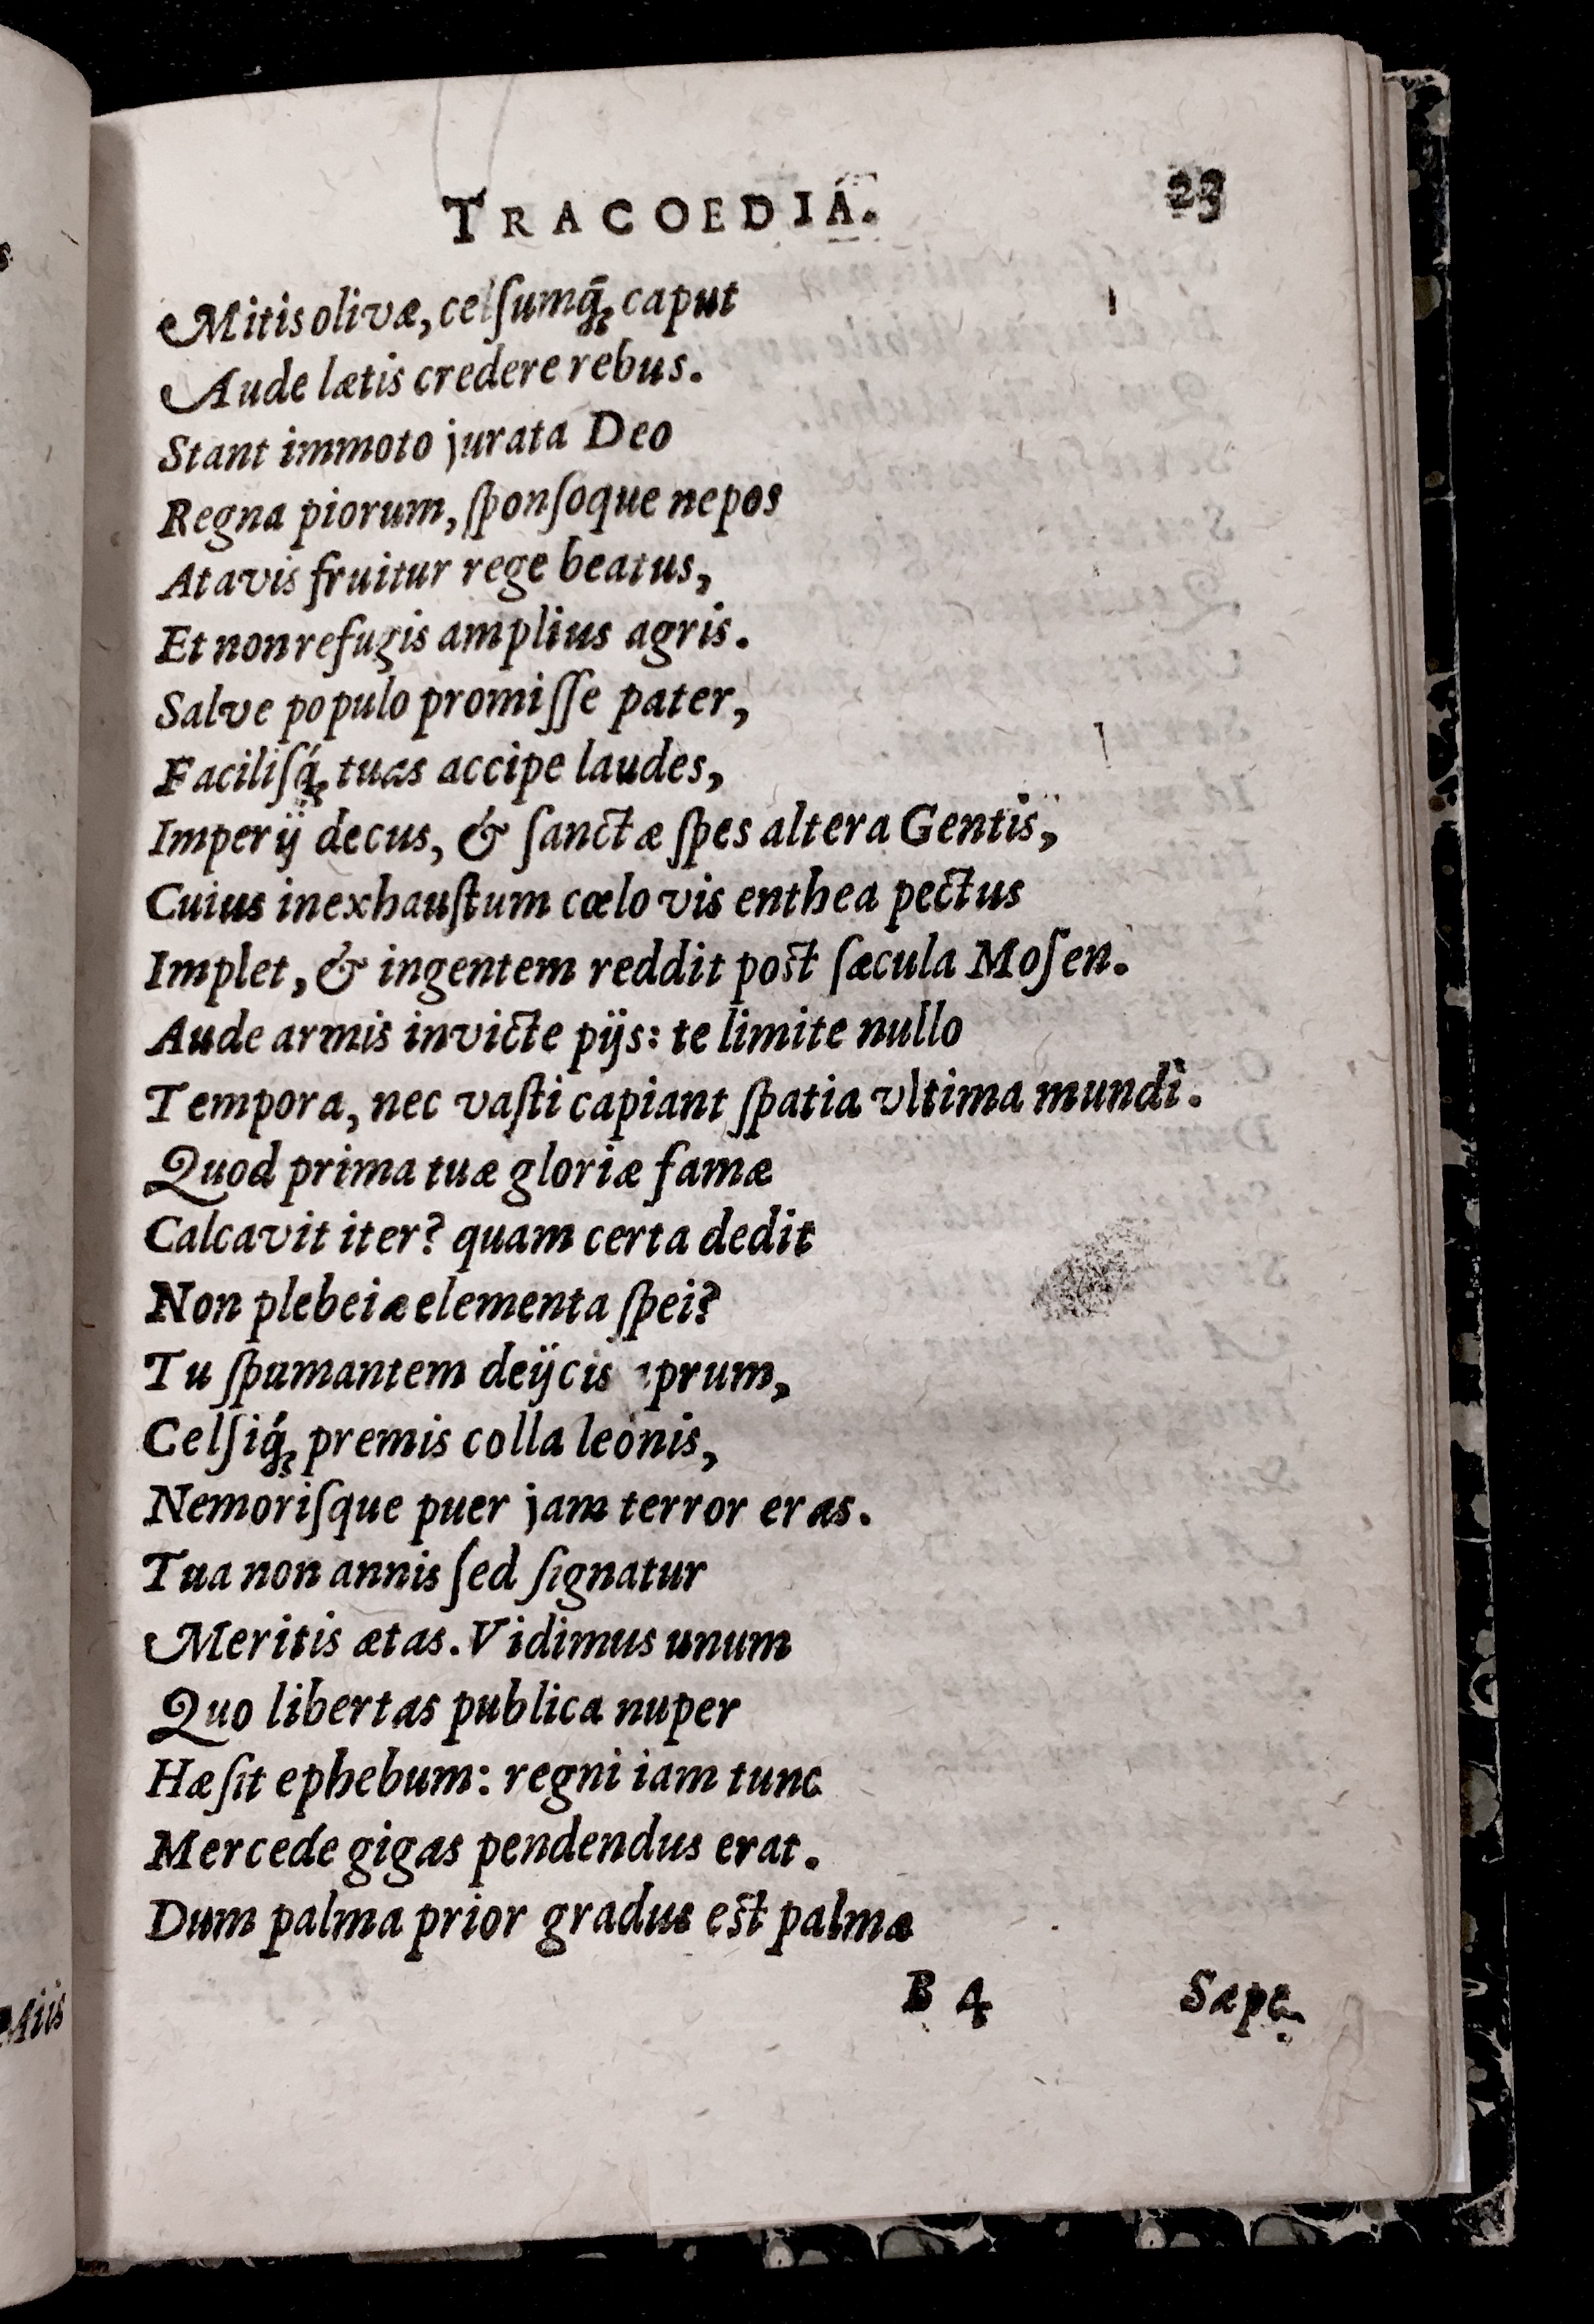 TRACOEDIA. 23
Mitis olivæ, celſumq́ꝫ caput
Aude lætis credere rebus.
Stant immoto jurata Deo
Regna piorum, ſponſoque nepos
Atavis fruitur rege beatus,
Et non refugis amplius agris.
Salve populo promiſſe pater,
Faciliſq́ꝫ tuas accipe laudes,
Imperĳ decus, & ſanctæ ſpes altera Gentis,
Cuius inexhauſtum cœlo vis enthea pectus
Implet, & ingentem reddit poſt ſæcula Moſen.
Aude armis invicte pĳs: te limite nullo
Tempora, nec vaſti capiant ſpatia vltima mundi.
Quod prima tuæ gloriæ famæ
Calcavit iter? quam certa dedit
Non plebeiæ elementa ſpei?
Tu ſpumantem deĳcis prum,
Celſiq́ꝫ premis colla leonis,
Nemoriſque puer jam terror eras.
Tua non annis ſed ſignatur
Meritis ætas. Vidimus unum
Quo libertas publica nuper
Hæſit ephebum: regni iam tunc
Mercede gigas pendendus erat.
Dum palma prior gradus eſt palmæ
B 4 Sæpe
Miis